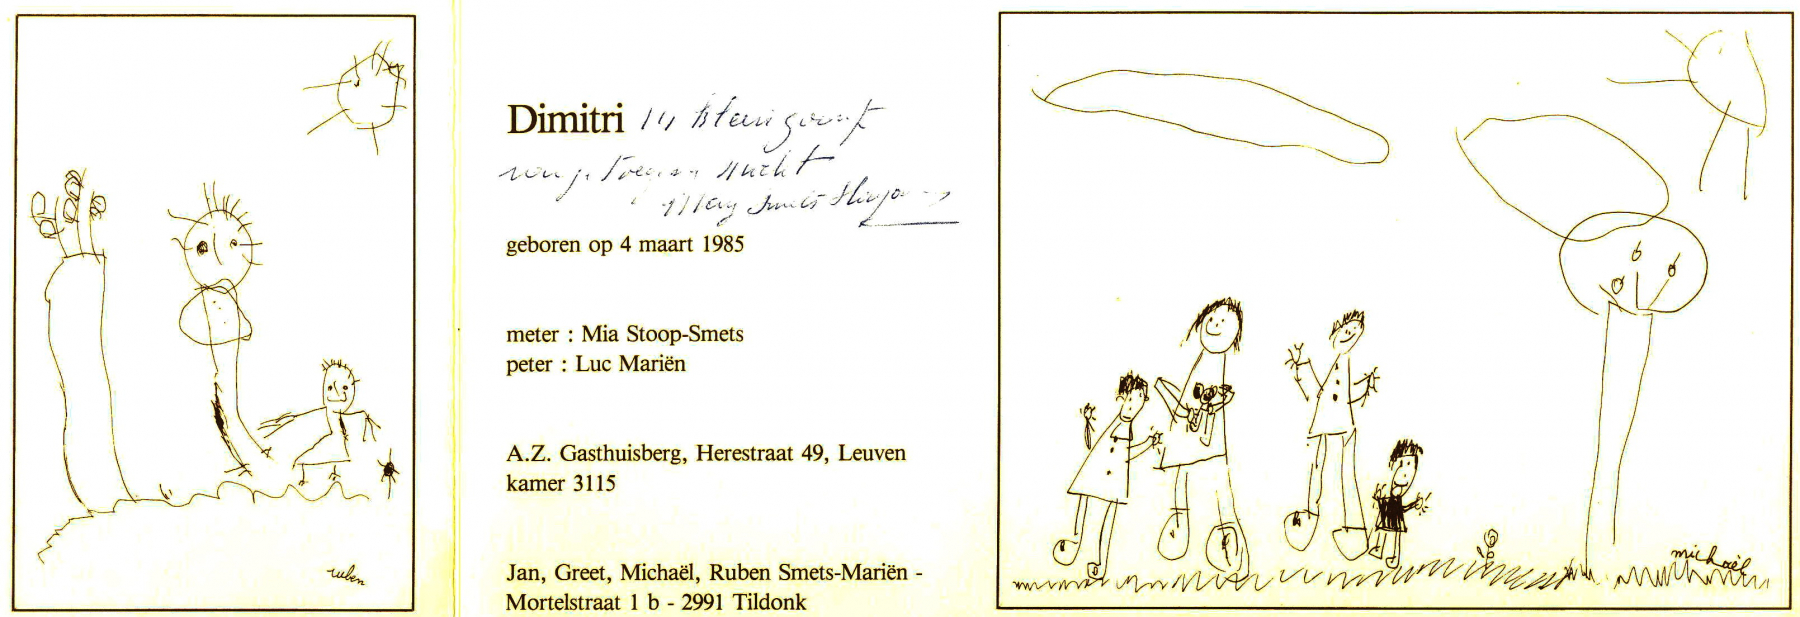 ruben
Dimitri
geboren op 4 maart 1985
meter : Mia Stoop-Smets
peter : Luc Mariën
A.Z. Gasthuisberg, Herestraat 49, Leuven
kamer 3115
Jan, Greet, Michaël, Ruben Smets-Mariën -
Mortelstraat 1 b - 2991 Tildonk
michaël